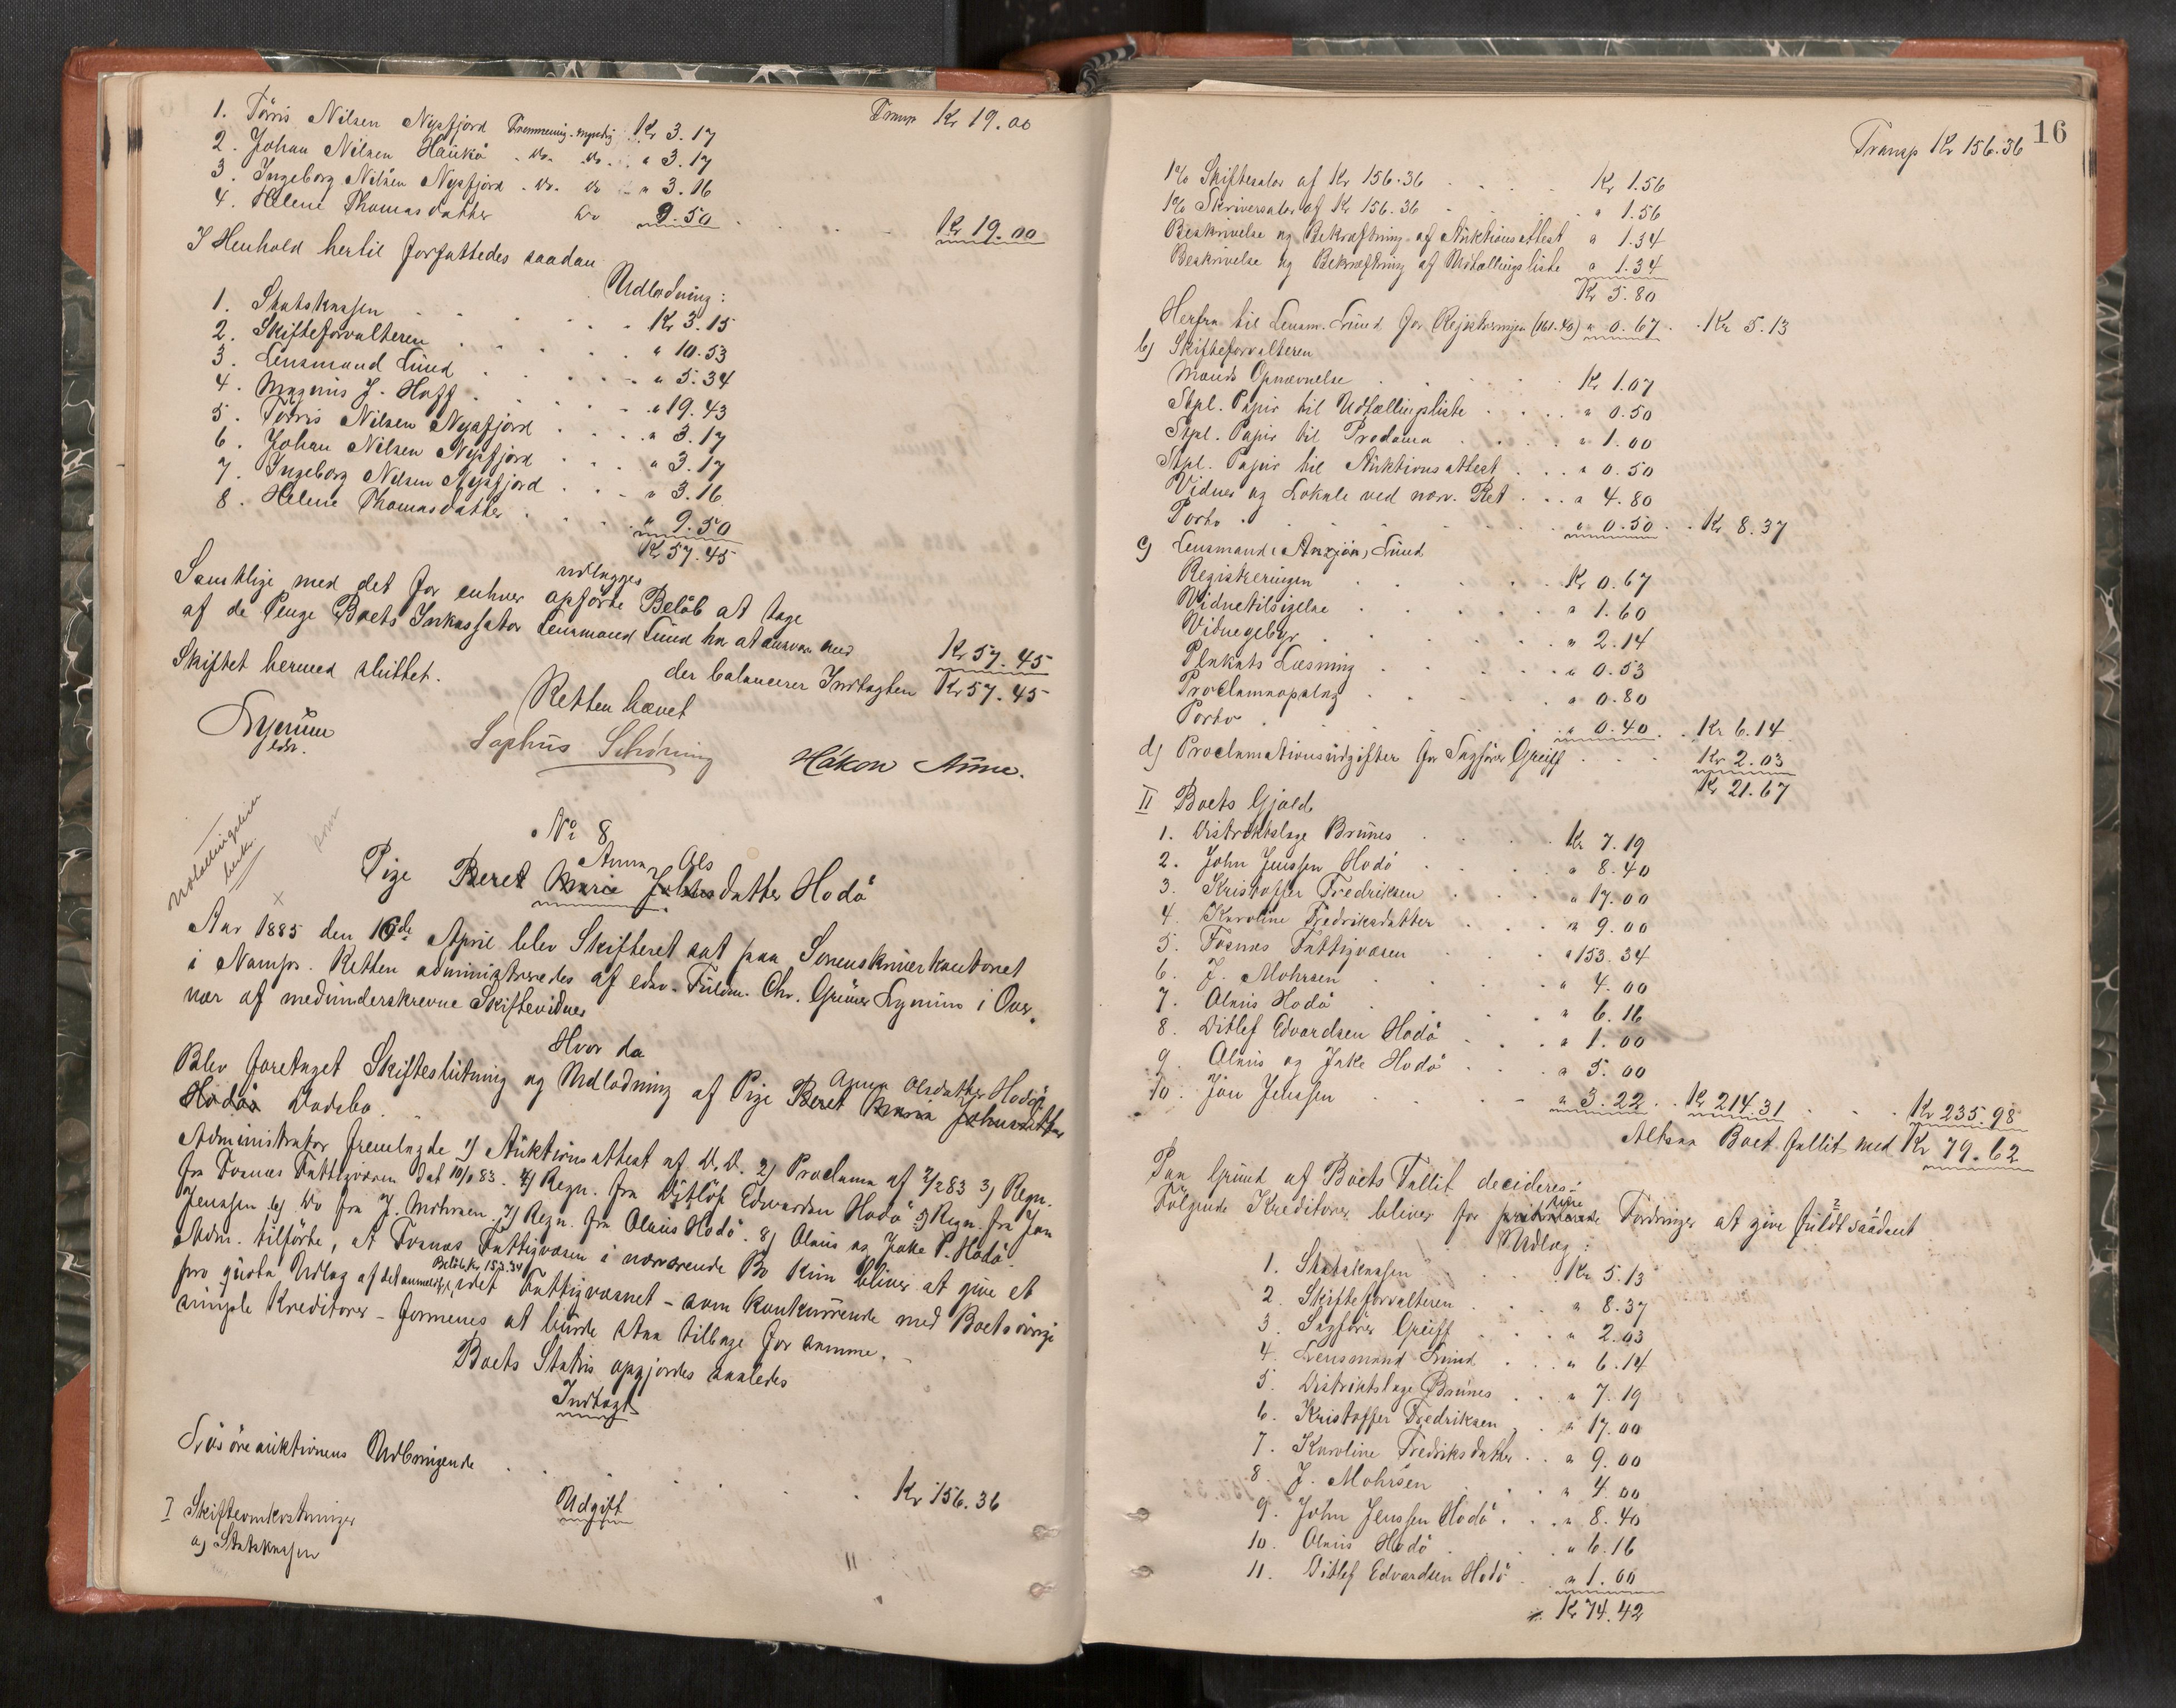 Transp Kr 19.00
1. Törris Nilsen Nypfjord Fremmenig. myndig Kr 3.17
2. Johan Nilsen Haukö . do. do. " 3.17
3. Ingeborg Nilsen Nypfjord . do. do " 3.16
4. Helene Thomasdatter do 9.50 . . . . Kr 19.00
I Henhold hertil forfattedes saadan
Udlodning:
1. Statskassen . . . . . Kr 3.15
2. Skifteforvalteren . . . . " 10.53
3. Lensmand Lund . . . . " 5.34
4. Magnus J. Hoff . . . . " 19.43
5. Törris Nilsen Nypfjord . . . " 3.17
6. Johan Nilsen Nypfjord . . . " 3.17
7. Ingeborg Nilsen Nypfjord . . . " 3.16
8. Helene Thomasdatter . . . . " 9.50
Kr 57.45
udlægges
Samtlige med det for enhver opförte Belöb at tage
af de Penge Boets Inkassator Lensmand Lund har at ansvare med Kr 57.45
der balancerer Indtægten Kr 57.45
Skiftet hermed sluttet.
Retten hævet
Lysnum
edsv.
Sophus Schöning
Håkon Aune.
No 8
Anna Ols
Pige Beret Marie Johnsdatter Hodö
Aar 1885 den 16de April blev Skifteret sat paa Sorenskriverkontoret
i Namsos. Retten administreredes af edsv. Fuldm. Chr. Grüner Lysnum i Over-
vær af medunderskrevne Skiftevidner
Hvor da
Anna Olsdatter Hodö
Blev foretaget Skifteslutning og Udlodning af Pige Beret Maria Johnsdatter
Hodös Dödsbo.
Administrator fremlagde 1) Auktionsattest af D.D. 2) Proclama af 7/2 83 3) Regn.
fra Fosnæs Fattigvæsen dat 10/1 83. 4) Regn. fra Ditlöf Edvardsen Hodö 5) Regn. fra Jon
Jenssen 6) Do fra J. Mohrsen. 7) Regn. fra Olaus Hodö. 8) Olaus og Jake P. Hodö.
Adm. tilförte, at Fosnæs Fattigvæsen i nærværende Bo kun bliver at give et
Belöb Kr 153.34
pro quota Udlæg af det anmeldte, idet Fattigvæsnet - som konkurrende med Boets övrige
simple Kreditorer - formenes at burde staa tilbage for samme.
Boets Status opgjordes saaledes
Indtægt
Lösöreauktionens Udbringende . . . . . Kr 156.36
Udgift
I Skifteomkostninger
a) Statskassen
16
Transp Kr 156.36
1% Skiftesalær af Kr 156.36 . . . . Kr 1.56
1% Skriversalær af Kr 156.36 . . . . " 1.56
Beskrivelse og Bekræftning af Auktionsattest " 1.34
Beskrivelse og Bekræftning af Udtællingsliste " 1.34
Kr 5.80
Herfra til Lensm. Lund for Rejistreringen (161.40) " 0.67 . . Kr 5.13
b) Skifteforvalteren
Mænds Opnævnelse . . . . Kr 1.07
Stpl. Papir til Udtællingsliste . . . . " 0.50
Stpl. Papir til Proclama . . . . " 1.00
Stpl. Papir til Auktionsattest . . . " 0.50
Vidner og Lokale ved nærv. Ret . . . " 4.80
Porto . . . . . . " 0.50 . . Kr 8.37
c) Lensmand Lund
Registreringen . . . . Kr 0.67
Vidnetilsigelse . . . . " 1.60
Vidnegebyr . . . . " 2.14
Plakats Læsning . . . . " 0.53
Proclamaopslag . . . . " 0.80
Porto . . . . . " 0.40 . . Kr 6.14
d) Proclamationsudgifter for Sagförer Greiff . . . Kr 2.03
Kr 21.67
II Boets Gjæld
1. Distriktslæge Brunes . . Kr 7.19
2. John Jenssen Hodö . . . " 8.40
3. Kristoffer Fredriksen . . . " 17.00
4. Karoline Fredriksdatter . . . " 9.00
5. Fosnæs Fattigvæsen . . . " 153.34
6. J. Mohrsen . . . . " 4.00
7. Olaus Hodö . . . . " 6.16
8. Ditlef Edvardsen Hodö . . . " 1.00
9. Olaus og Jake Hodö . . . " 5.00
10. Jon Jenssen . . . . " 3.22 . . Kr 214.31 . . . Kr 235.98
Altsaa Boet fallit med Kr 79.62
Paa Grund af Boets Fallit decideres:
Fölgende Kreditorer bliver for Fordringer at give fuldt saadant
Udlæg:
1. Statskassen . . . Kr 5.13
2. Skifteforvalteren . . . " 8.37
3. Sagförer Greiff . . . " 2.03
4. Lensmand Lund . . . " 6.14
5. Distriktslæge Brunes . . " 7.19
6. Kristoffer Fredriksen . . " 17.00
7. Karoline Fredriksdatter . . " 9.00
8. J. Mohrsen . . . " 4.00
9. John Jenssen Hodö . . . " 8.40
10. Olaus Hodö . . . " 6.16
11. Ditlef Edvardsen Hodö . " 1.00
Kr 74.42